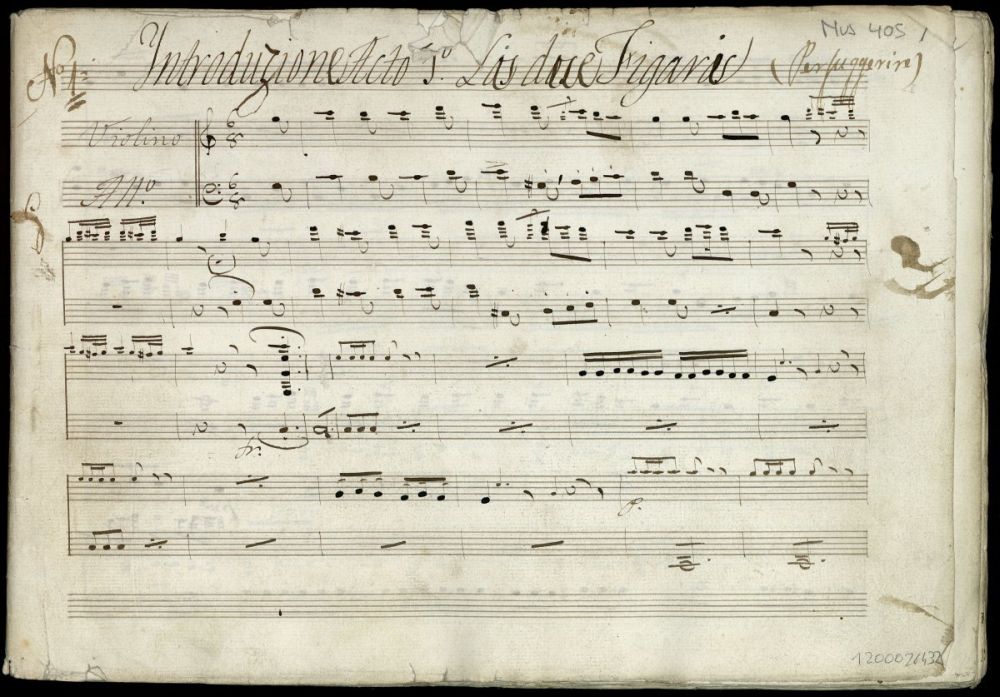 Mus 405 1
Nº 1º Introduzione Acto 1º Los dos Figaris (Per suggerire)
Violino
All.º
fr.
P.
1200026432